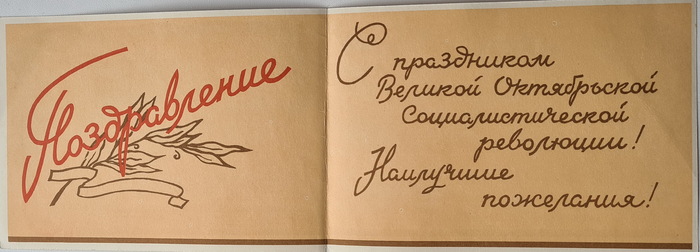 Поздравление
С праздником
Великой Октябрьской
Социалистической
революции!
Наилучшие
пожелания!